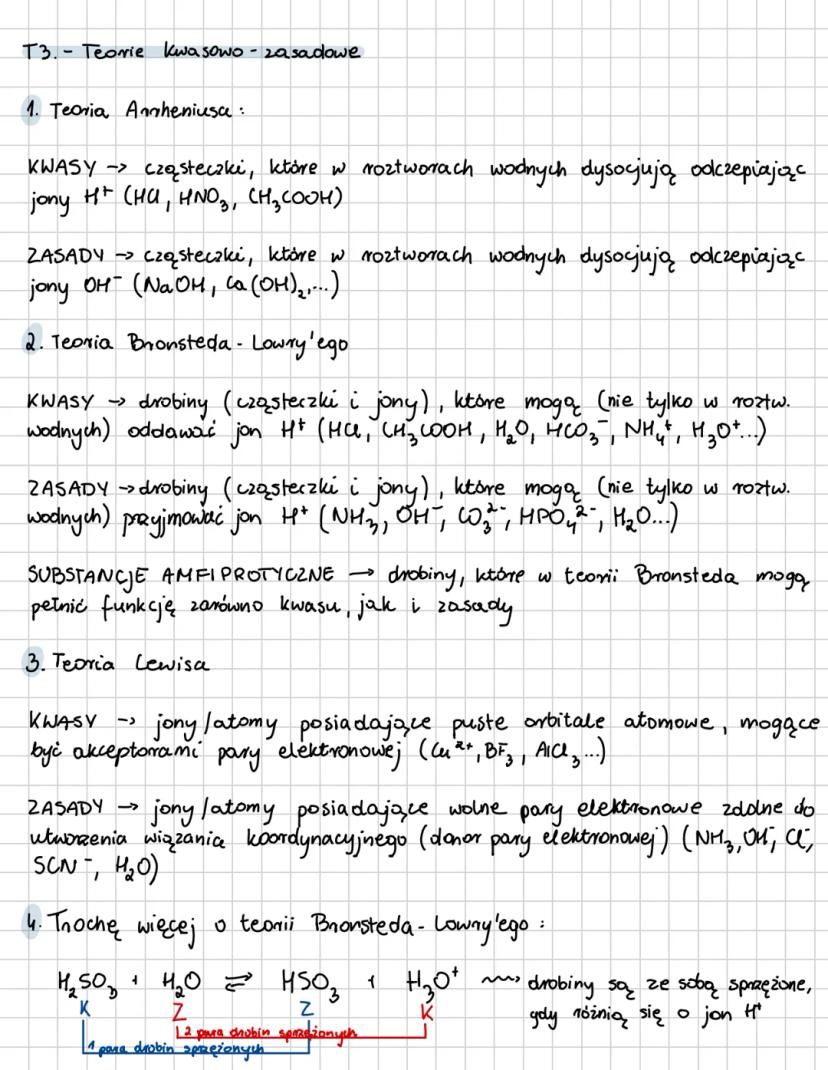 T3. - Teorie kwasowo - zasadowe
1. Teoria Arrheniusa :
KWASY -> cząsteczki, które w roztworach wodnych dysocjują odczepiając
jony H⁺ (HCl, HNO₃, CH₃COOH)
ZASADY -> cząsteczki, które w roztworach wodnych dysocjują odczepiając
jony OH⁻ (NaOH, Ca(OH)₂,...)
2. Teoria Bronsteda - Lowry'ego
KWASY -> drobiny (cząsteczki i jony), które mogą (nie tylko w roztw.
wodnych) oddawać jon H⁺ (HCl, CH₃COOH, H₂O, HCO₃⁻, NH₄⁺, H₃O⁺...)
ZASADY -> drobiny (cząsteczki i jony), które mogą (nie tylko w roztw.
wodnych) przyjmować jon H⁺ (NH₃, OH⁻, CO₃²⁻, HPO₄²⁻, H₂O...)
SUBSTANCJE AMFIPROTYCZNE -> drobiny, które w teorii Bronsteda mogą
pełnić funkcję zarówno kwasu, jak i zasady
3. Teoria Lewisa
KWASY -> jony/atomy posiadające puste orbitale atomowe, mogące
być akceptorami pary elektronowej (Cu²⁺, BF₃, AlCl₃...)
ZASADY -> jony/atomy posiadające wolne pary elektronowe zdolne do
utworzenia wiązania koordynacyjnego (donor pary elektronowej) (NH₃, OH⁻, Cl⁻,
SCN⁻, H₂O)
4. Trochę więcej o teorii Bronsteda - Lowry'ego :
H₂SO₃ + H₂O ⇌ HSO₃ + H₃O⁺ ~~> drobiny są ze sobą sprzężone,
K Z Z K gdy różnią się o jon H⁺
2 para drobin sprzężonych
1 para drobin sprzężonych